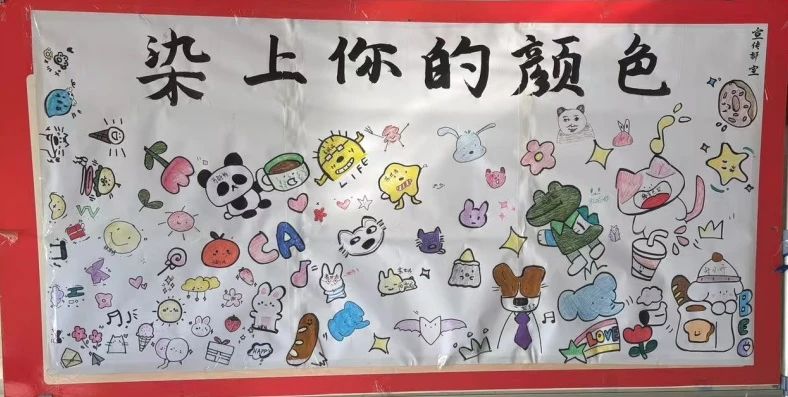 染上你的颜色
宣传部 宣
LIFE
CA
LOVE
HAPPY